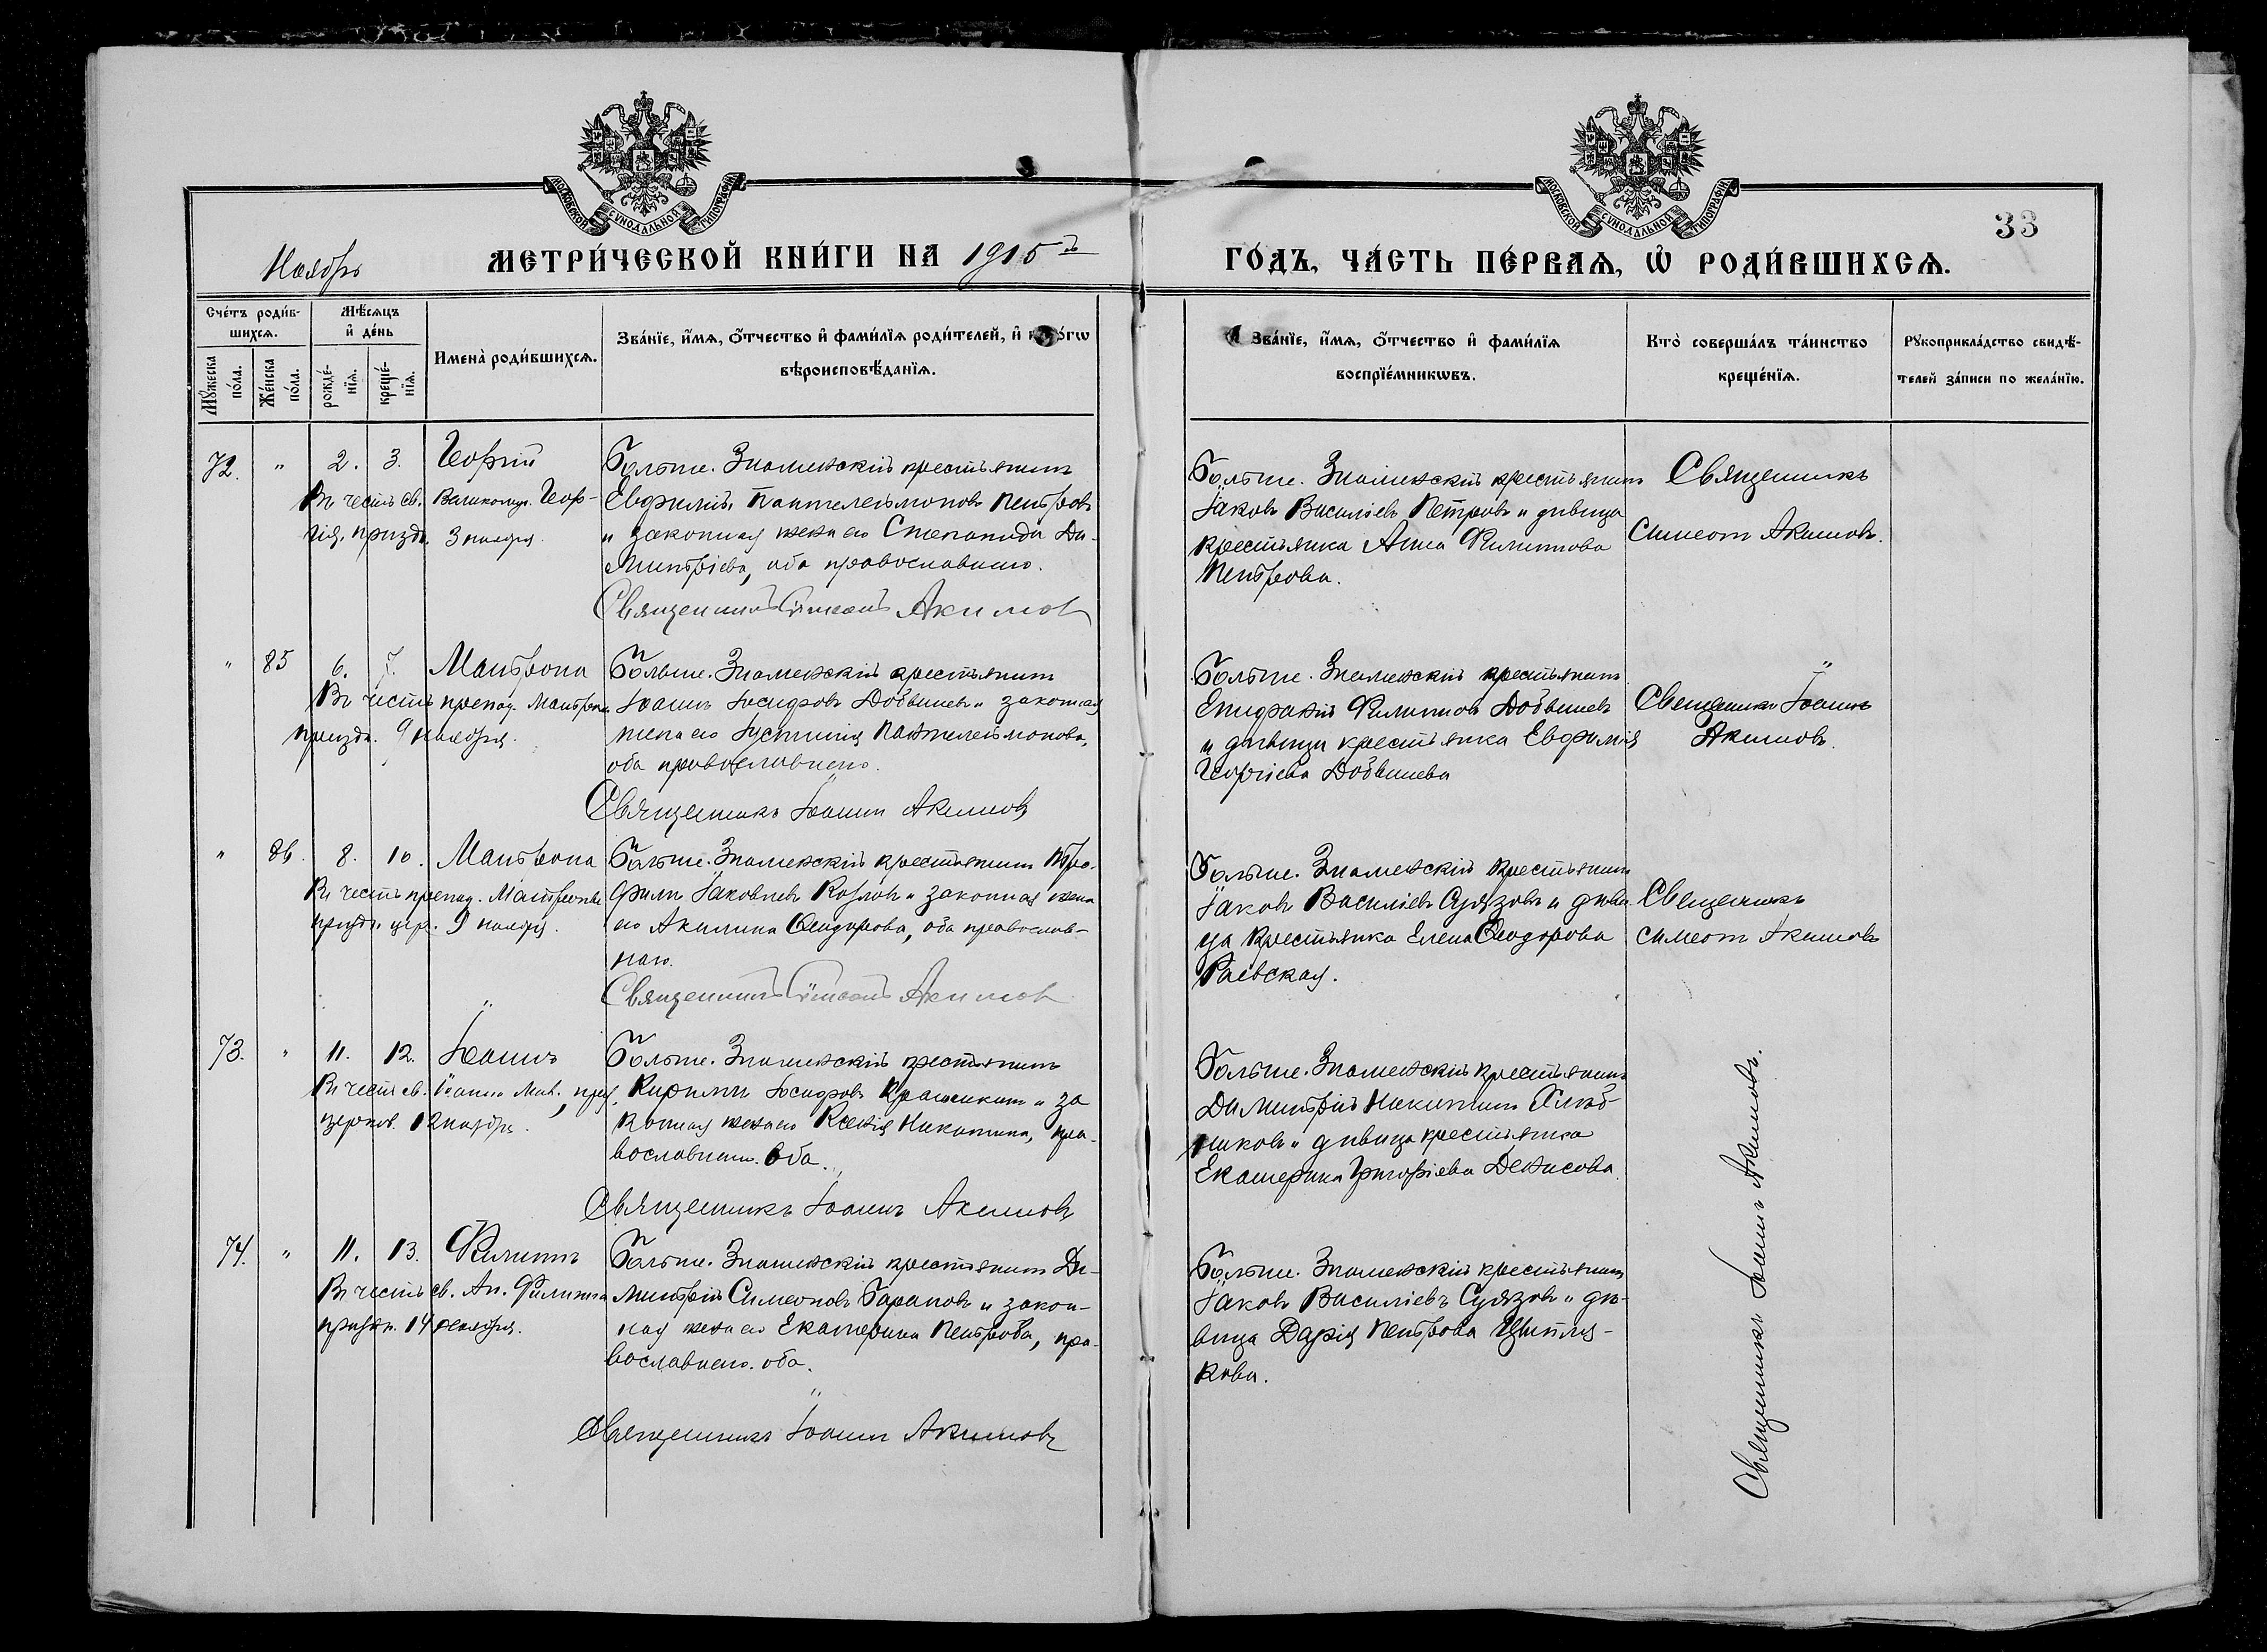 МОСКОВСКОЙ СѴНОДАЛЬНОЙ ТИПОГРАФІИ
МОСКОВСКОЙ СѴНОДАЛЬНОЙ ТИПОГРАФІИ
33
Ноябрь
МЕТРИ́ЧЕСКОЙ КНИ́ГИ НА 1915й
ГО́ДЪ, ЧА́СТЬ ПЕ́РВАѦ, Ѡ҆ РОДИ́ВШИХСѦ.
Сче́тъ роди́в-
шихсѧ.
Мѣ́сѧцъ
и҆ де́нь
Мꙋ́жеска
по́ла.
Же́нска
по́ла.
рожде́-
нїѧ.
креще́-
нїѧ.
Имена̀ роди́вшихсѧ.
Зва́нїе, и҆́мѧ, ѻ҆́тчество и҆ фами́лїѧ роди́телей, и҆
вѣроисповѣ́данїѧ.
Зва́нїе, и҆́мѧ, ѻ҆́тчество и҆ фами́лїѧ
воспрїе́мникѡвъ.
Кто̀ соверша́лъ та́инство
креще́нїѧ.
Рꙋкоприкла́дство свидѣ́-
телей за́писи по жела́нїю.
72. " 2. 3. Георгій
Въ честь св. Великомуч. Геор-
гія, празд. 3 ноября.
Больше. Знаменскій крестьянинъ
Евфимій Пантелеимоновъ Петровъ
и законная жена его Степанида Ди-
митріева, оба православнаго.
Священникъ Симеонъ Акимов
Больше. Знаменскій крестьянинъ
Іаковъ Василіевъ Петровъ и дѣвица
крестьянка Анна Филиппова
Петрова.
Священникъ
Симеонъ Акимовъ.
" 85 6. 7. Матрона
Въ честь препод. Матроны
празд. 9 ноября.
Больше. Знаменскій крестьянинъ
Іоаннъ Іосифовъ Добышевъ и законная
жена его Іустинія Пантелеимонова,
оба православнаго.
Священникъ Іоаннъ Акимовъ
Больше. Знаменскій крестьянинъ
Епифаній Филипповъ Добышевъ
и дѣвица крестьянка Евфимія
Георгіева Добышева
Священникъ Іоаннъ
Акимовъ.
" 86. 8. 10. Матрона
Въ честь препод. Матроны
празд. церк. 9 ноября.
Больше. Знаменскій крестьянинъ Тро-
фимъ Іаковлевъ Козловъ и законная жена
его Акилина Ѳеодорова, оба православ-
наго.
Священникъ Симеонъ Акимов
Больше. Знаменскій крестьянинъ
Іаковъ Василіевъ Судязовъ и дѣви-
ца крестьянка Елена Ѳеодорова
Раевская.
Священникъ
Симеонъ Акимовъ
73. " 11. 12. Іоаннъ
Въ честь св. Іоанна Мил., празд.
церков. 12 ноября.
Больше. Знаменскій крестьянинъ
Кириллъ Іосифовъ Крашенин и за
конная жена его Ксенія Никитина, пра-
вославнаго. Оба.
Священникъ Іоаннъ Акимовъ
Больше. Знаменскій крестьянинъ
Димитрій Никитинъ Хлѣб-
никовъ и дѣвица крестьянка
Екатерина Григоріева Денисова.
74. " 11. 13. Филиппъ
Въ честь св. Ап. Филиппа
празд. 14 ноября.
Больше. Знаменскій крестьянинъ Ди-
митрій Симеоновъ Барановъ и закон-
ная жена его Екатерина Петрова, пра-
вославнаго. оба.
Священникъ Іоаннъ Акимовъ
Больше. Знаменскій крестьянинъ
Іаковъ Василіевъ Судязовъ и дѣ-
вица Дарія Петрова Цыпля-
кова.
Священникъ Іоаннъ Акимовъ.